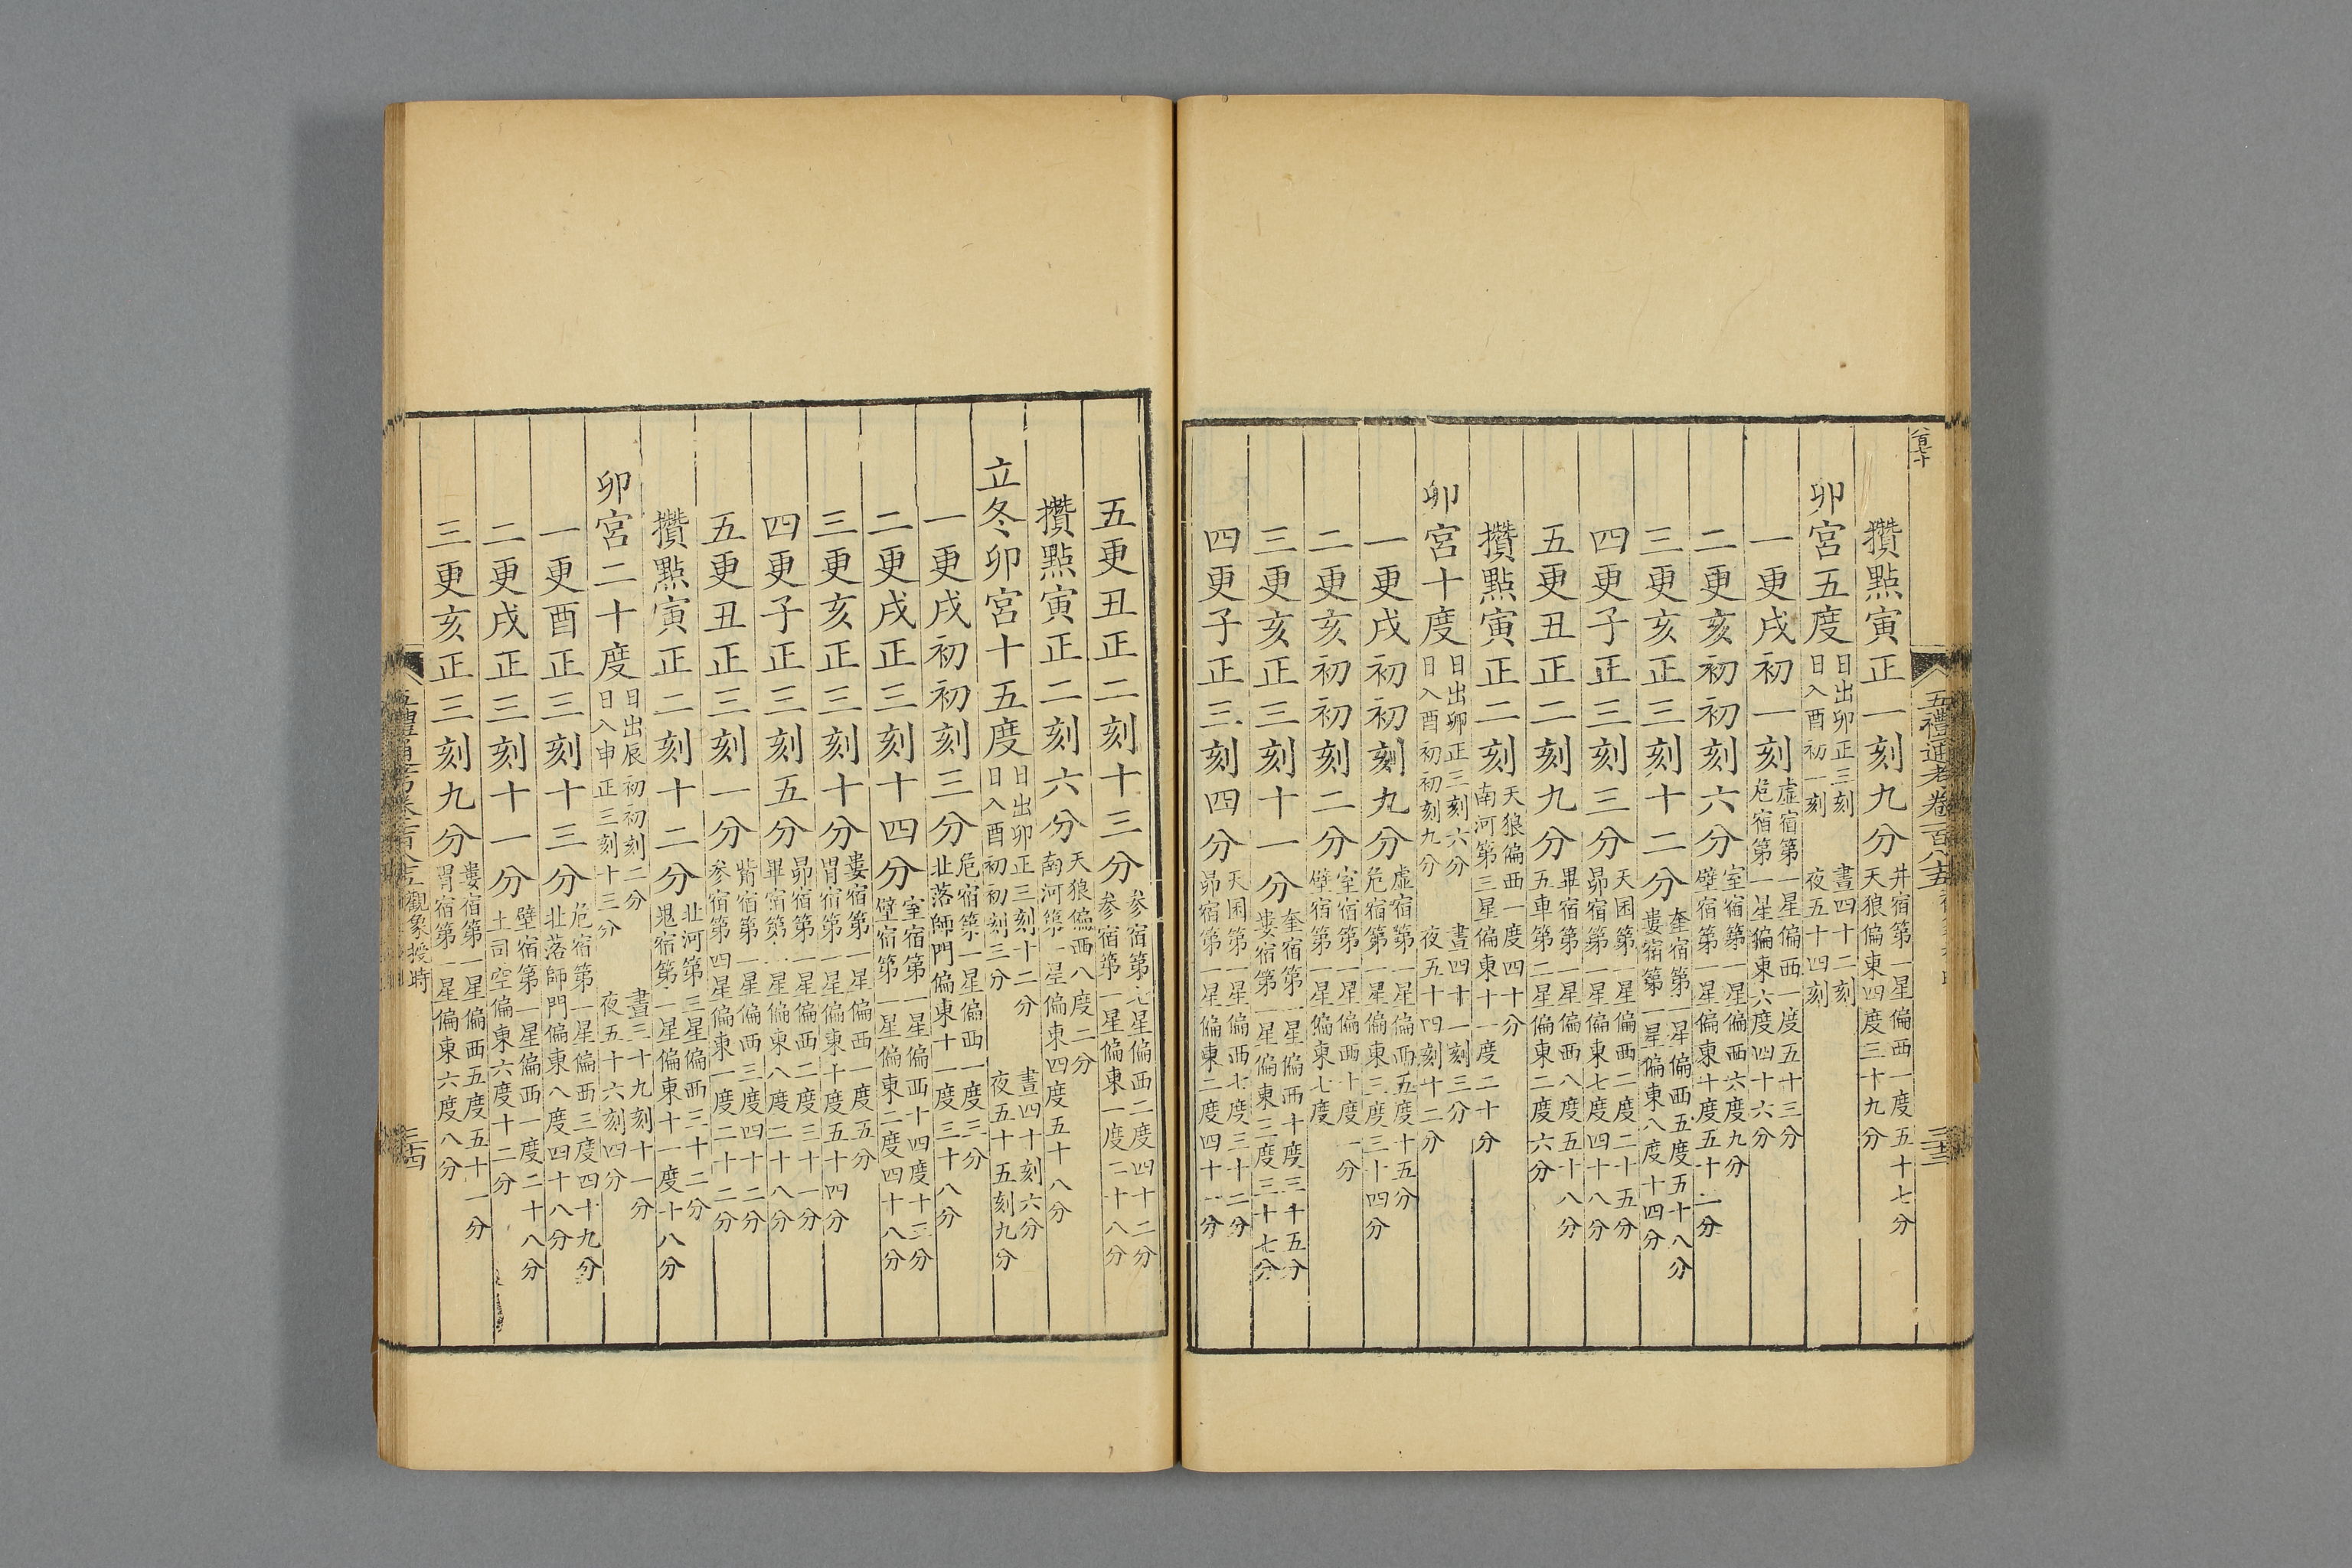 五禮通考卷一百八十五
攢點寅正一刻九分井宿第一星偏西一度五十七分
天狼偏東四度三十九分
卯宮五度日出卯正三刻 晝四十二刻
日入酉初一刻 夜五十四刻
一更戌初一刻虛宿第一星偏西一度五十三分
危宿第一星偏東六度四十六分
二更亥初初刻六分室宿第一星偏西六度九分
壁宿第一星偏東十度五十二分
三更亥正三刻十二分奎宿第一星偏西五度五十八分
婁宿第一星偏東八度十四分
四更子正三刻三分天囷第一星偏西二度二十五分
昴宿第一星偏東七度四十八分
五更丑正二刻九分畢宿第一星偏西八度五十八分
五車第二星偏東二度六分
攢點寅正二刻天狼偏西一度四十分
南河第三星偏東十一度二十分
卯宮十度日出卯正三刻六分 晝四十一刻三分
日入酉初初刻九分 夜五十四刻十二分
一更戌初初刻九分虛宿第一星偏西五度十五分
危宿第一星偏東三度三十四分
二更亥初初刻二分室宿第一星偏西十度一分
壁宿第一星偏東七度
三更亥正三刻十一分奎宿第一星偏西十度三十五分
婁宿第一星偏東三度三十七分
四更子正三刻四分天囷第一星偏西七度三十二分
昴宿第一星偏東二度四十一分
五更丑正二刻十三分參宿第七星偏西二度四十二分
參宿第一星偏東一度二十八分
攢點寅正二刻六分天狼偏西八度二分
南河第一星偏東四度五十八分
立冬卯宮十五度日出卯正三刻十二分 晝四十刻六分
日入酉初初刻三分 夜五十五刻九分
一更戌初初刻三分危宿第一星偏西一度三分
北落師門偏東十一度三十八分
二更戌正三刻十四分室宿第一星偏西十四度十三分
壁宿第一星偏東二度四十八分
三更亥正三刻十分婁宿第一星偏西一度五分
胃宿第一星偏東十度五十四分
四更子正三刻五分昴宿第一星偏西二度三十一分
畢宿第一星偏東八度二十八分
五更丑正三刻一分觜宿第一星偏西三度四十二分
參宿第四星偏東一度二十二分
攢點寅正二刻十二分北河第三星偏西三十二分
鬼宿第一星偏東十一度十八分
卯宮二十度日出辰初初刻二分 晝三十九刻十一分
日入申正三刻十三分 夜五十六刻四分
一更酉正三刻十三分危宿第一星偏西三度四十九分
北落師門偏東八度四十八分
二更戌正三刻十一分壁宿第一星偏西一度二十八分
土司空偏東六度十二分
三更亥正三刻九分婁宿第一星偏西五度五十一分
胃宿第一星偏東六度八分
觀象授時